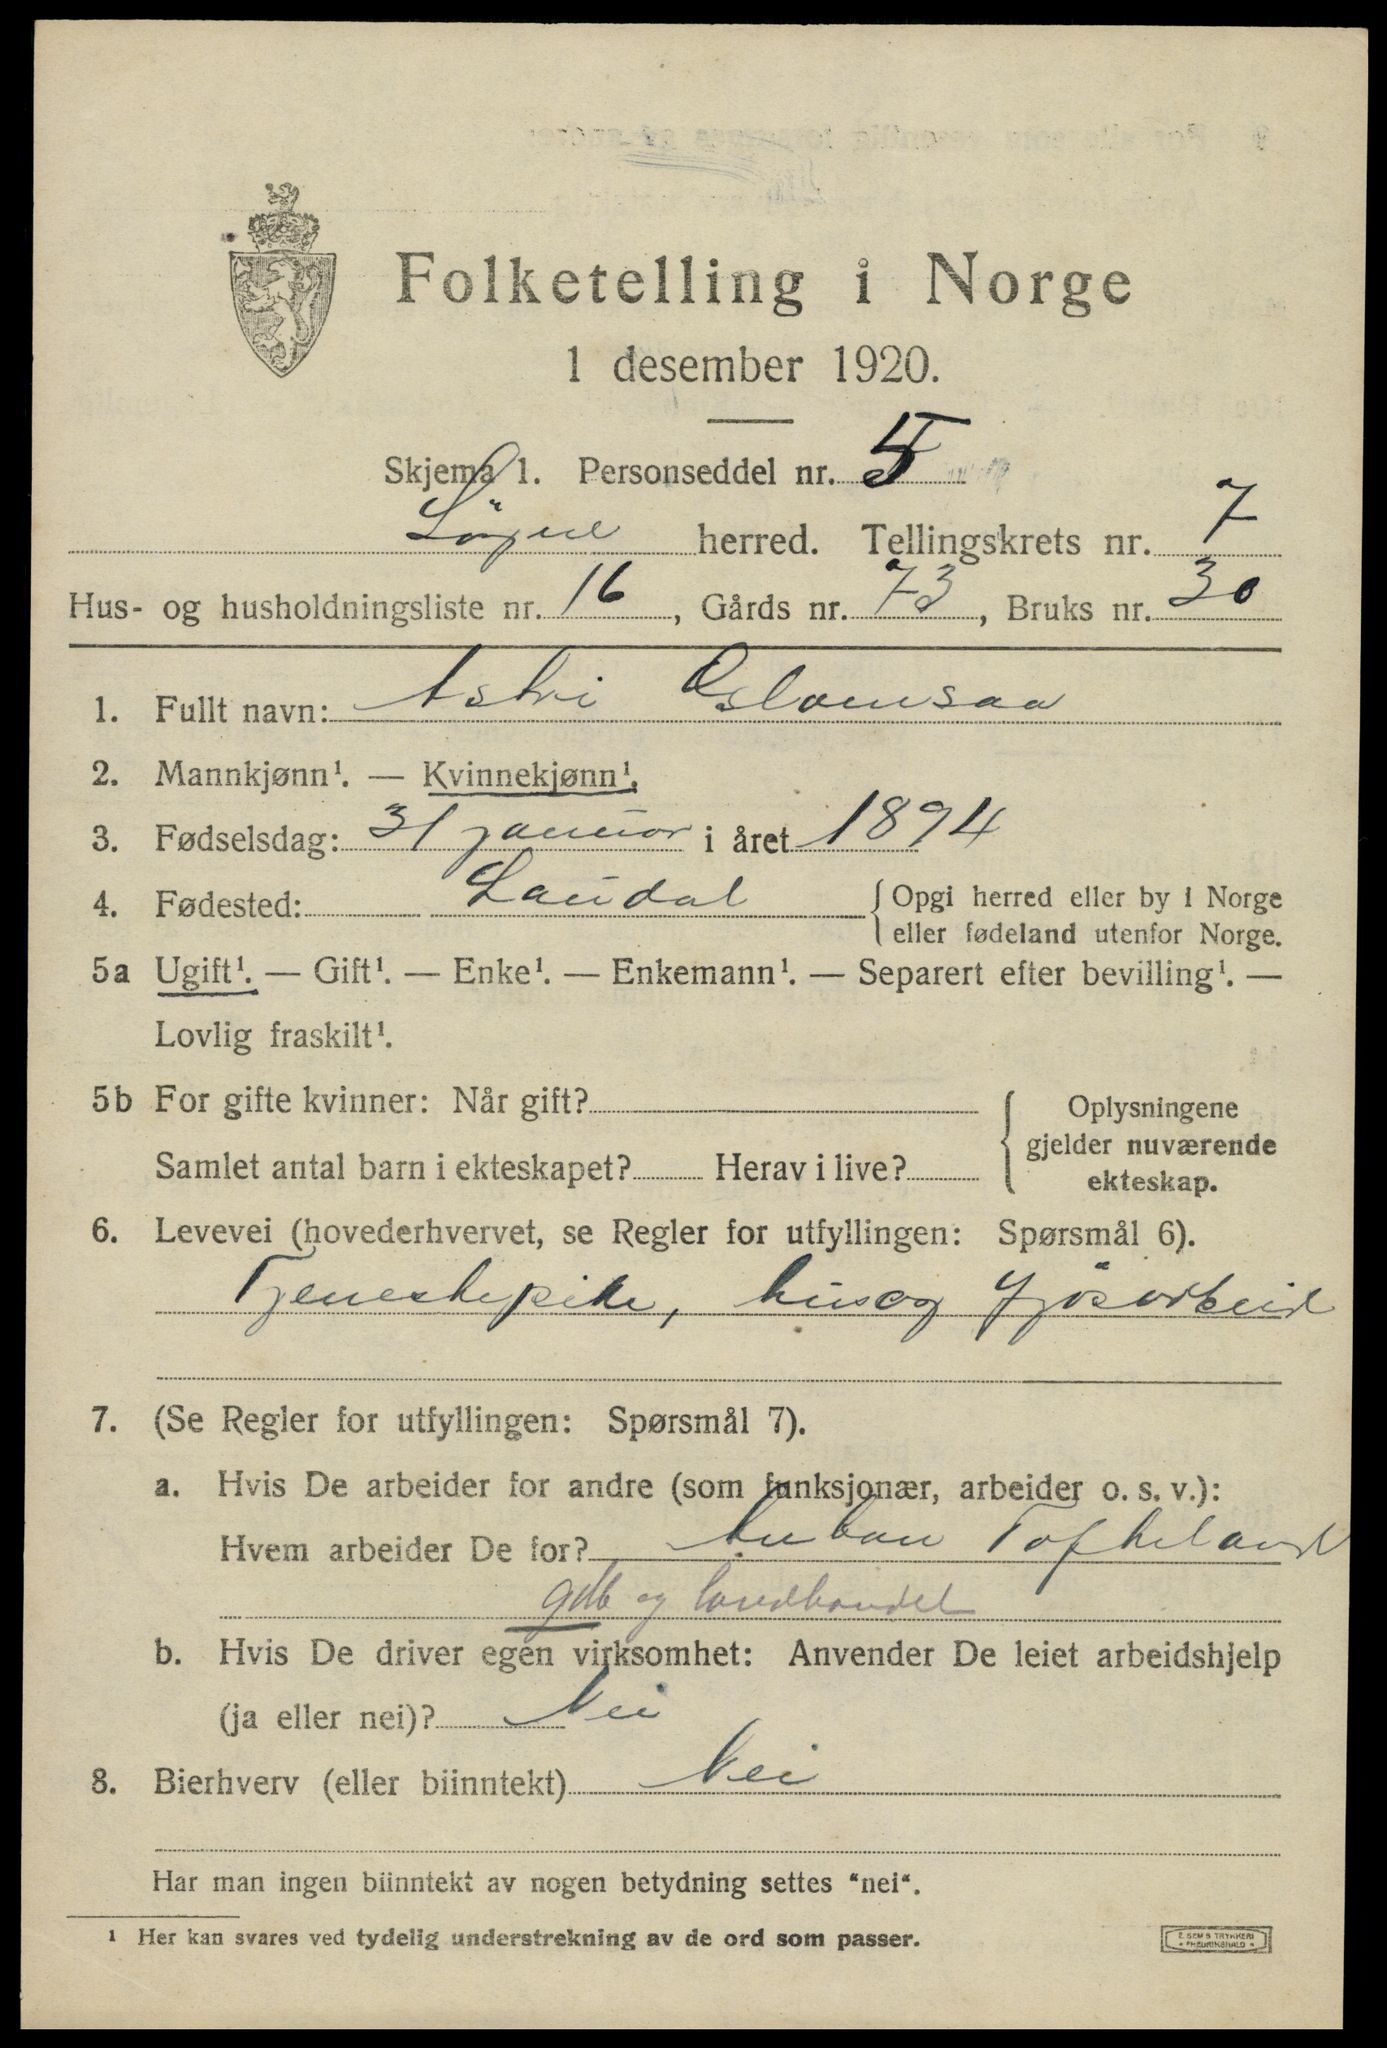 Folketelling i Norge
1 desember 1920.
Skjema 1. Personseddel nr. 5
Søgne herred. Tellingskrets nr. 7
Hus- og husholdningsliste nr. 16, Gårds nr. 73, Bruks nr. 30
1. Fullt navn: Astri
2. Mannkjønn¹. — Kvinnekjønn¹.
3. Fødselsdag: 31 januar i året 1894
4. Fødested: Laudal {Opgi herred eller by i Norge
eller fødeland utenfor Norge.
5a Ugift¹. — Gift¹. — Enke¹. — Enkemann¹. — Separert efter bevilling¹. —
Lovlig fraskilt¹.
5b For gifte kvinner: Når gift? Oplysningene
gjelder nuværende
Samlet antal barn i ekteskapet? Herav i live? ekteskap.
6. Levevei (hovederhvervet, se Regler for utfyllingen: Spørsmål 6).
Tjenestepike, hus og fjösarbeid
7. (Se Regler for utfyllingen: Spørsmål 7).
a. Hvis De arbeider for andre (som funksjonær, arbeider o. s. v.):
Hvem arbeider De for? Anton Tofteland
gdb og landhandel
b. Hvis De driver egen virksomhet: Anvender De leiet arbeidshjelp
(ja eller nei)? Nei
8. Bierhverv (eller biinntekt) Nei
Har man ingen biinntekt av nogen betydning settes "nei".
¹ Her kan svares ved tydelig understrekning av de ord som passer.
E. SEM'S TRYKKERI
FREDRIKSHALD